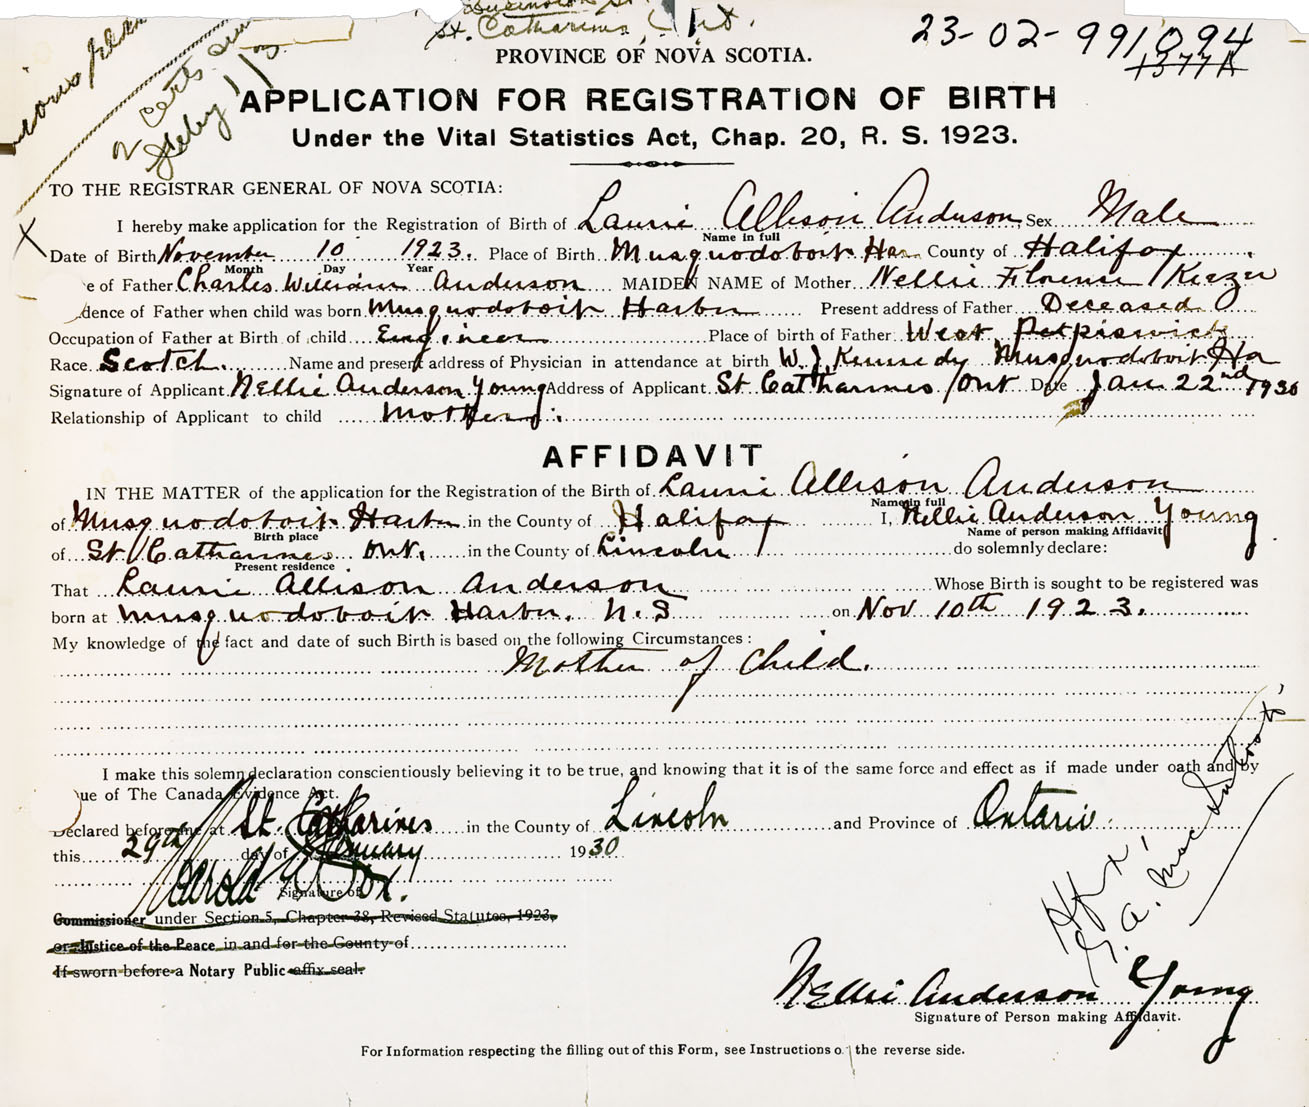 St. Catharines, Ont.
23-02-991094
1377A
2 certs
PROVINCE OF NOVA SCOTIA.
APPLICATION FOR REGISTRATION OF BIRTH
Under the Vital Statistics Act, Chap. 20, R. S. 1923.
TO THE REGISTRAR GENERAL OF NOVA SCOTIA:
I hereby make application for the Registration of Birth of Laurie Allison Anderson Sex Male
Name in full
Date of Birth November 10 1923. Place of Birth Musquodoboit Har. County of Halifax
Month Day Year
e of Father Charles William Anderson MAIDEN NAME of Mother Nellie Florence Kiezer
dence of Father when child was born Musquodoboit Harbor Present address of Father Deceased
Occupation of Father at Birth of child Engineer Place of birth of Father West Petpiswick
Race Scotch. Name and present address of Physician in attendance at birth W. J. Kennedy Musquodoboit Ha
Signature of Applicant Nellie Anderson Young Address of Applicant St Catharines Ont Date Jan 22nd 1930
Relationship of Applicant to child Mother
AFFIDAVIT
IN THE MATTER of the application for the Registration of the Birth of Laurie Allison Anderson
Name in full
of Musquodoboit Harbor in the County of Halifax I, Nellie Anderson Young
Birth place Name of person making Affidavit
of St Catharines Ont. in the County of Lincoln do solemnly declare:
Present residence
That Laurie Allison Anderson Whose Birth is sought to be registered was
born at Musquodoboit Harbor, N.S on Nov 10th 1923.
My knowledge of the fact and date of such Birth is based on the following Circumstances:
Mother of Child.
I make this solemn declaration conscientiously believing it to be true, and knowing that it is of the same force and effect as if made under oath and by
ue of The Canada Evidence Act.
Declared before me at St. Catharines in the County of Lincoln and Province of Ontario.
this 29th day of January 1930
Harold Cox.
Signature of
Commissioner under Section 5, Chapter 38, Revised Statutes, 1923,
or Justice of the Peace in and for the County of
If sworn before a Notary Public affix seal.
Nellie Anderson Young
Signature of Person making Affidavit.
For Information respecting the filling out of this Form, see Instructions o the reverse side.